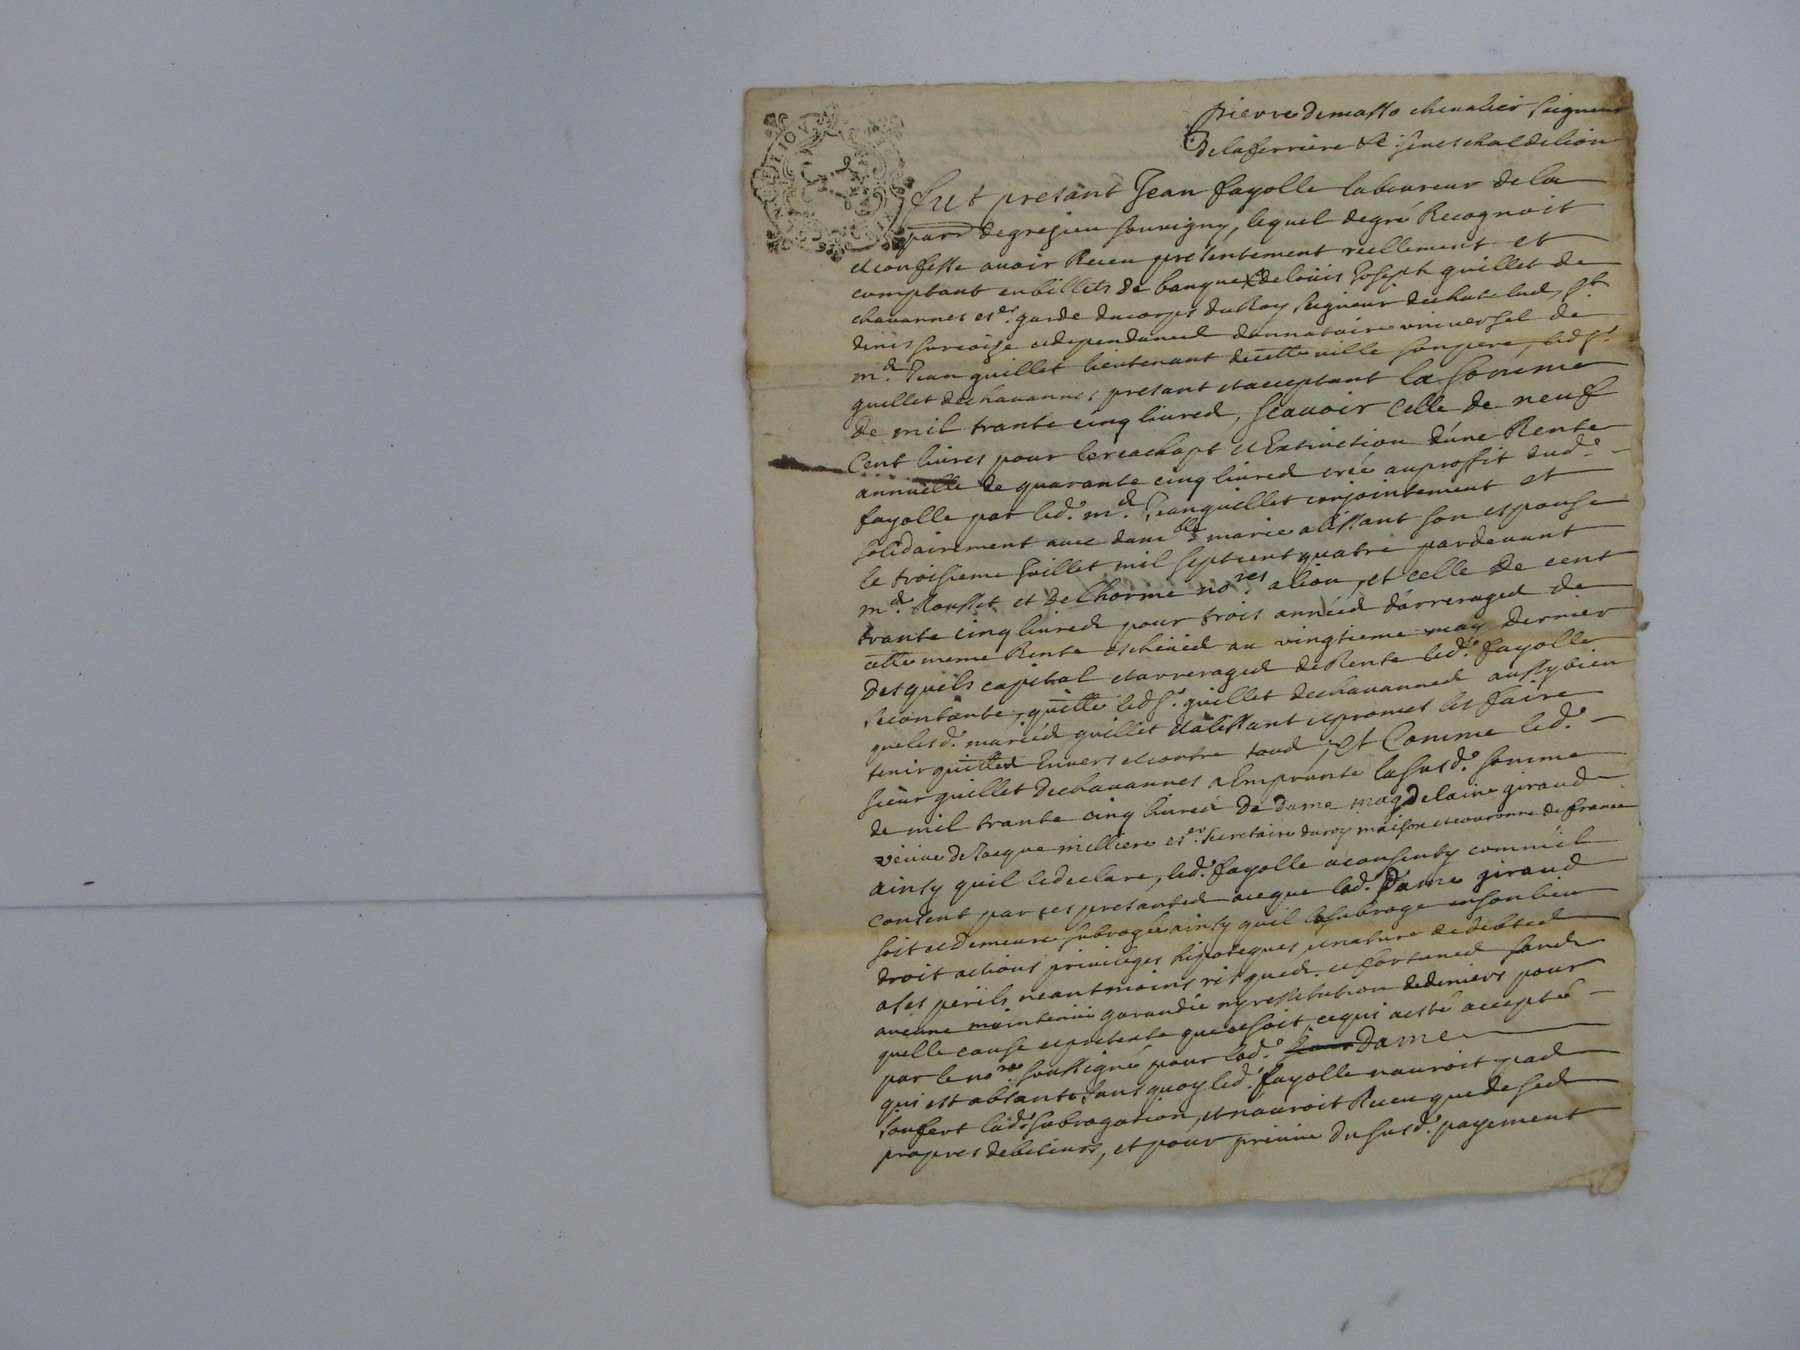 pierre demasso chevalier seigneur
delaferriere &c senechal de lion
fut presant Jean fayolle laboureur de la
parr degrezieu souvigny, lequel degré Recognoit
et confesse avoir Receu presentement reellement et
comptant en billets de banque de loüis Joseph guillet de
chavannes esr. garde du corps du Roy seigneur dechatelud, st.
denis et dependances donnataire universel de
md. Jean guillet lieutenant decette ville son pere, led sr.
guillet de chavannes presant et acceptant la somme
de mil trante cinq livred, scavoir celle de neuf
Cent livres pour lereachapt et Extinction d'une Rente
annuelle de quarante cinq livred creé auproffit dud.
fayolle par led. md. Jean guillet conjointement et
solidairement avec dam.lle marie alissant son espouse
le troisieme Juillet mil sept cent quatre pardevant
md. Rousset et Delhorme no.res alion, et celle de cent
trante cinq livred pour trois annéed d'arreraged de
cette meme Rente echeüed au vingtieme may dernier
desquels capital et arreraged de Rente led. fayolle
secontante, quitte led sr. guillet dechavanned aussy bien
que lesd. mariéd guillet et alissant et promet les faire
tenir quitted Envers et contre toud, Et Comme led.
sieur guillet dechavannes a Emprunté la susd. somme
de mil trante cinq livred de dame magdelaine giraud
veuve de Jacque milliere esr. secretaire du roy maison et couronne de france
ainsy quil ledeclare, led. fayolle a consenty comm'il
consent par ces presanted aceque lad. Dame giraud
soit et demeure subrogée ainsy quil la subroge en son lieu
droit actions privileges hipoteques, et nature de debted
a ses perils neantmoins risqued et fortuned sand
aucune maintenüe garandie ny restitution dedeniers pour
quelle cause et pretexte que ce soit, cequi a esté accepté
par le no.re soussigné pour lad. Dame
qui est absante, sans quoy led. fayolle nauroit pad
soufert lad. subrogation, et nauroit Receu que de sed
propres debiteurs, et pour preuve du susd. payement